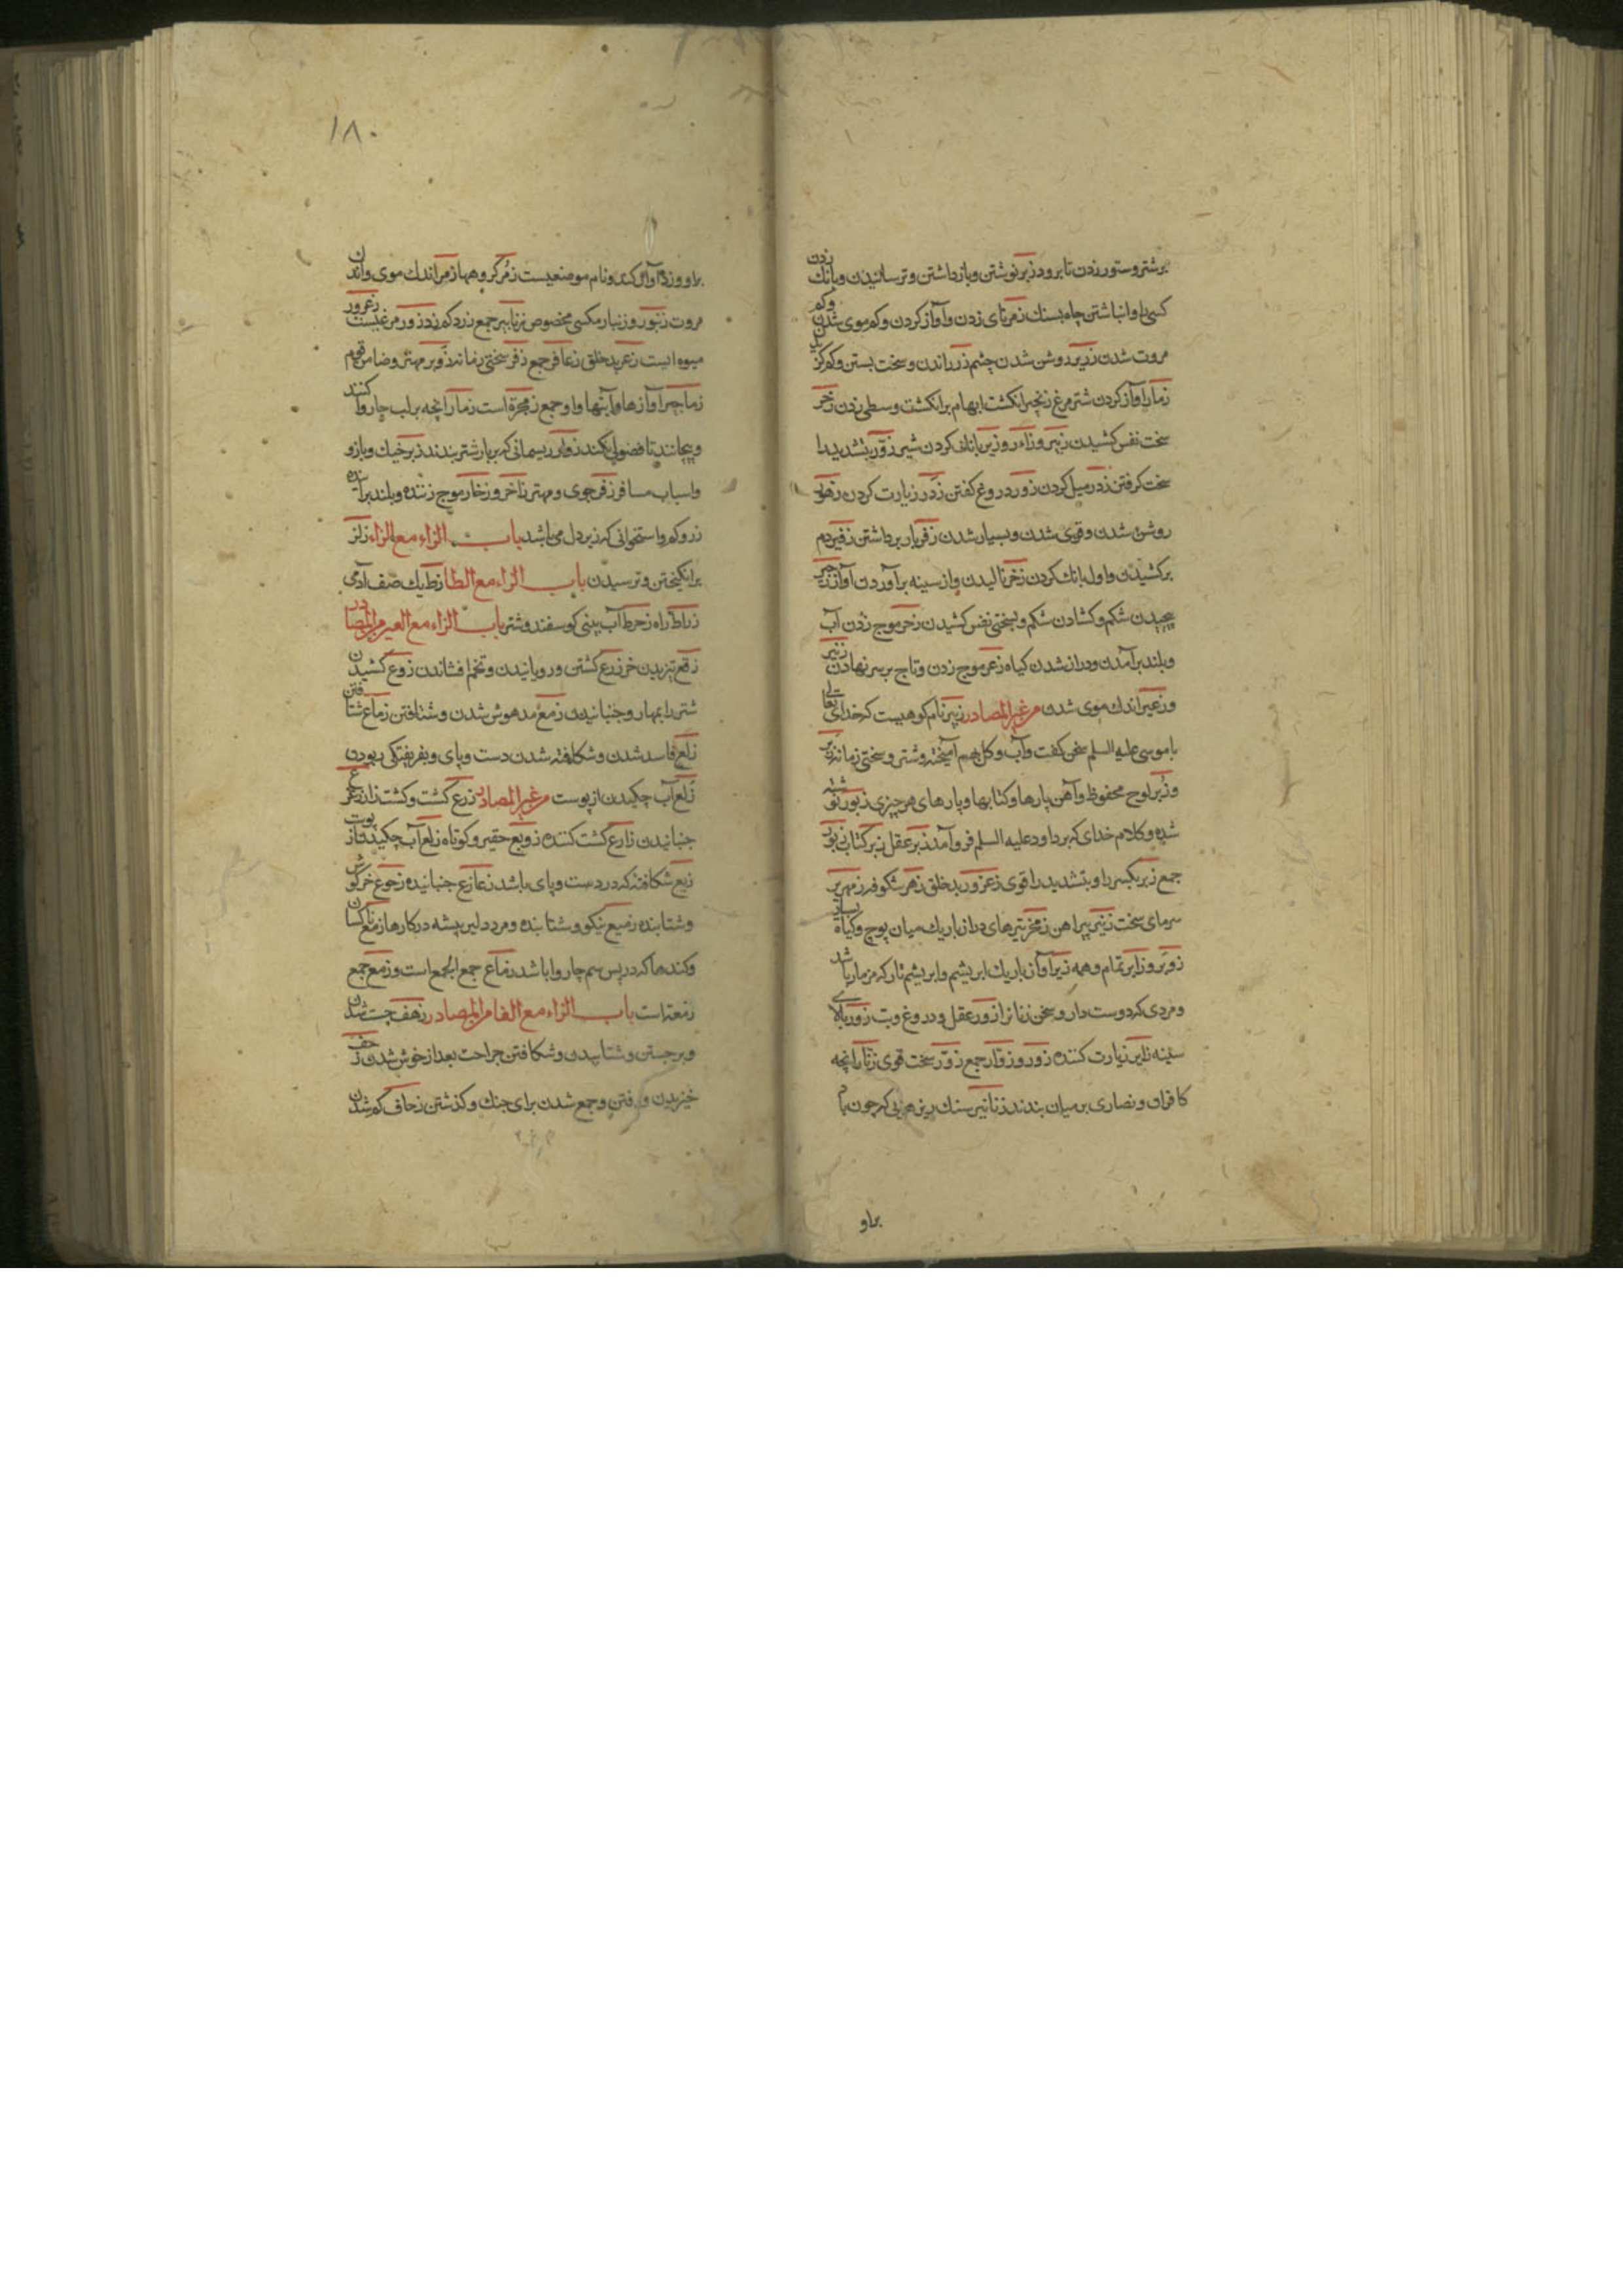 برشتر و ستور زدن تا برود زبر نوشتن و باز داشتن و ترسانیدن و بانك زدن
کسی را و انباشتن چاه بسنك زمر نای زدن و آواز کردن و کم موی شدن و کم
مروت شدن زریر روشن شدن چشم زر راندن و سخت بستن و کم کز
زمار آواز کردن شترمرغ زنجر انکشت ابهام بر انکشت وسطی زدن زخر
سخت نفس کشیدن زبر و زاءر و زیر بانك کردن شیر زور بتشدید را
سخت کرفتن زدر میل کردن زور دروغ کفتن زدر زیارت کردن زهور
روشن شدن و قوی شدن و بسیار شدن زفر بار برداشتن زفیر دم
برکشیدن و اول بانك کردن خر زخر نالیدن و از سینه بر آوردن آواز زحیر
پیچیدن شکم و کشادن شکم و بسختی نفس کشیدن زخر موج زدن آب
و بلند برآمدن و دراز شدن کیاه زعر موج زدن و تاج بر سر نهادن
و زعیر اندك موی شدن من غیر المصادر زبیر نام کوهیست که خدای تعالی
با موسی علیه السلم سخن کفت و آب و کل بهم آمیخته و شتر و سختی زمانه زبر
و زبر لوح محفوظ و آهن پارها و کتابها و پارهای هر چیزی زبور نوشته
شده و کلام خدای که بر داود علیه السلم فرو آمد زبر عقل زبر کتاب زبور
جمع زبر بکسر را و بتشدید را قوی زعرور بد خلق زهر شکوفه زمهریر
سرمای سخت زنیر پیراهن زمخر تیرهای دراز باریك میان پوچ و کیاه بسیار
زوبر و زابر تمام و همه زیر آواز باریك ابریشم و ابریشم تار که مزمار باشد
و مردی که دوست دار و سخن زنانرا زور عقل و دروغ و بت زور بالای
سینه زایر زیارت کننده زور و زوار جمع زور سخت قوی زنار آنچه
کافران و نصاری بر میان بندند زنانیر سنك ریزهایی که چون با
براو
۱۸۰
براو وزد آواز کند و نام موضعیست زمر کروهها زمر اندك موی و اندك
مروت زنبور و زنبار مکسی مخصوص زنابیر جمع زرد که زد زور مرغیست زعرور
میوه ایست زعر بد خلق زعافر جمع زفر سختی زمانه زوبر مهتر و ضامن قوم
زماجر آوازها و آبتها و او جمع زمجرة است زمار آنچه بر لب چاروا کنند
و پیچانند تا فضولی نکند زوار ریسمانی که بر بار شتر بندند زبر خیك و بازو
و اسباب مسافر زفر جوی و مهتر زاخر و زخار موج زننده و بلند برآینده
زور و استخوانی که زیر دل می باشد باب الزاء مع الزاء زلز
برانکیختن و ترسیدن باب الزاء مع الطا زط یك صنف آدمی
زراط راه زخرط آب بینی کوسفند و شتر باب الزاء مع العین من المصادر
زقع تیزیدن خر زرع کشتن و رویانیدن و تخم افشاندن زوع کشیدن
شتر را بمهار و جنبانیدن زمع مدهوش شدن و شتافتن زماع شتافتن
زلع فاسد شدن و شکافته شدن دست و پای و بفریفتکی ربودن
زلع آب چکیدن از پوست من غیر المصادر زرع کشت و کشتزار زعزع
جنبانیدن زارع کشت کننده زوبع حقیر و کوتاه زلع آب چکیدن از پوست
زیع شکافته که در دست و پای باشد زعازع جنبانیده زجوع خرکوش
و شتابنده زمیع نیکو و شتابنده و مرد دلیر پیشه در کارها زمع ناکسان
و کندها که در پس سم چاروا باشد زماع جمع الجمع است و زمع جمع
زمعه است باب الزاء مع الفا من المصادر زهف جست شدن
و برجستن و شتابیدن و شکافتن جراحت بعد از خوش شدن زحف
خیزیدن و رفتن و جمع شدن برای جنك و کذشتن زحاف کم شدن